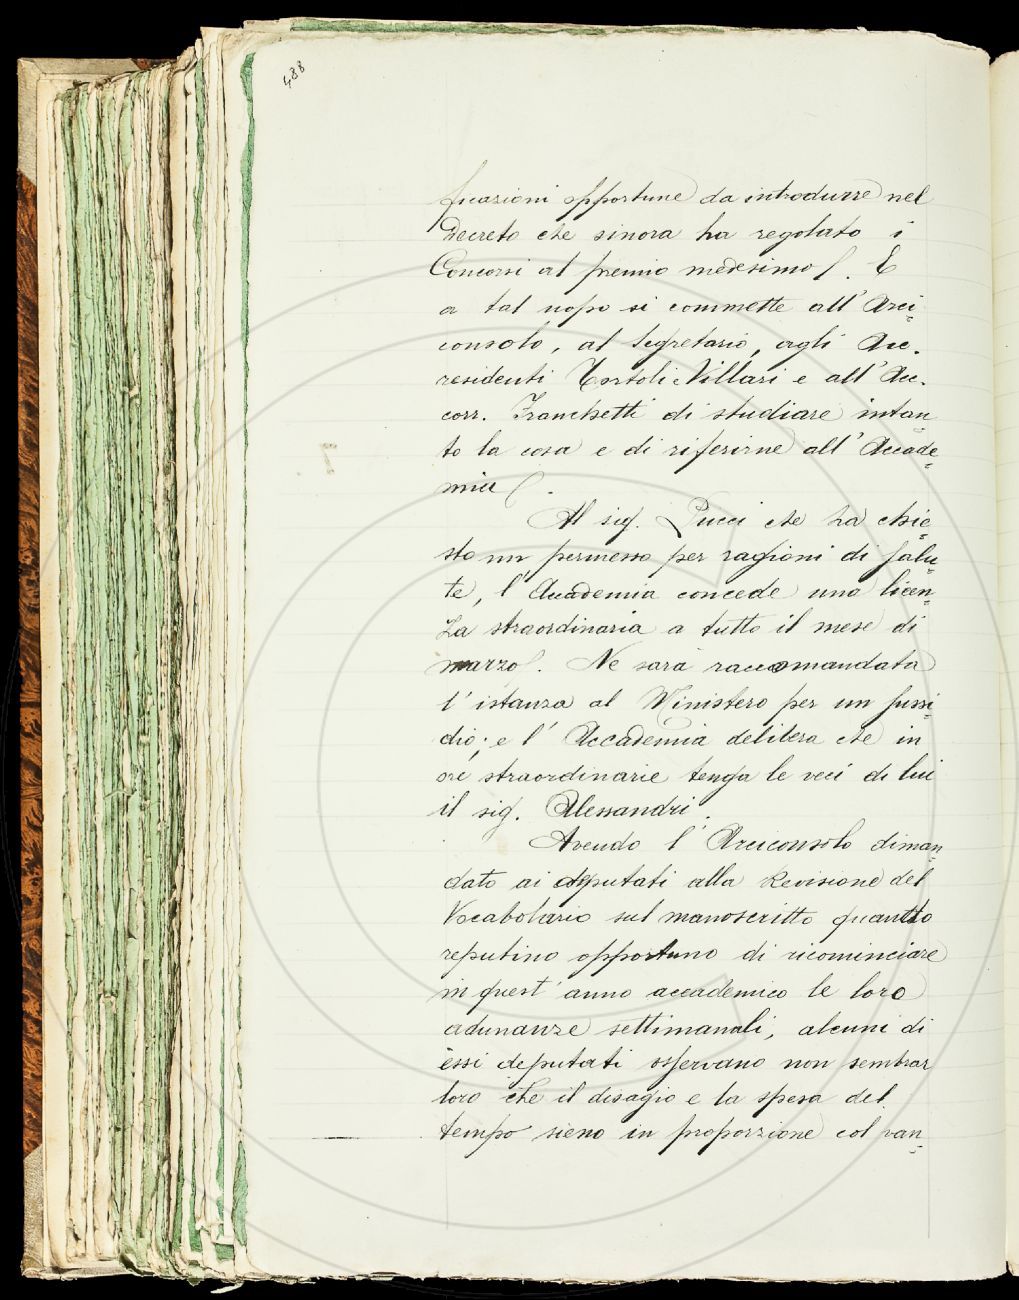 488
ficazioni opportune da introdurre nel
Decreto che sinora ha regolato i
Concorsi al premio medesimo. E
a tal uopo si commette all'Arci=
consolo, al Segretario, agli Acc.
residenti Tortoli Villari e all'Acc.
corr. Franchetti di studiare intan=
to la cosa e di riferirne all'Accade=
mia.
Al sig. Pucci che ha chie=
sto un permesso per ragioni di salu=
te, l'Accademia concede una licen=
za straordinaria a tutto il mese di
marzo. Ne sarà raccomandata
l'istanza al Ministero per un sussi=
dio; e l'Accademia delibera che in
ore straordinarie tenga le veci di lui
il sig. Alessandri.
Avendo l'Arciconsolo diman=
dato ai deputati alla Revisione del
Vocabolario sul manoscritto quanto
reputino opportuno di ricominciare
in quest'anno accademico le loro
adunanze settimanali, alcuni di
essi deputati osservano non sembrar
loro che il disagio e la spesa del
tempo sieno in proporzione col van=